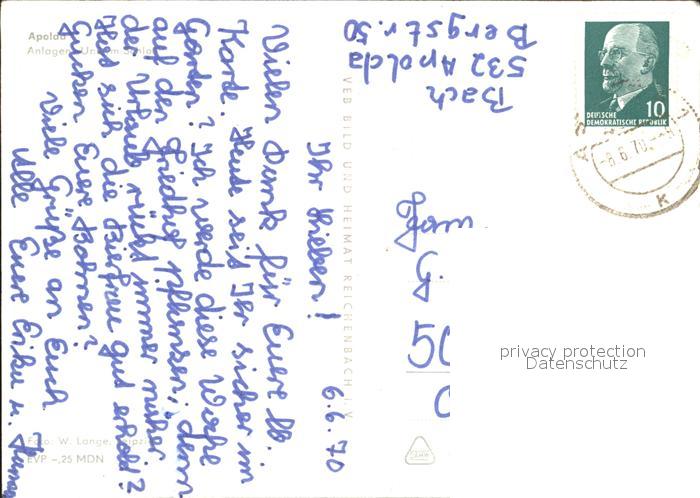 Apolda
Anlagen Unterm Schloß
Bach
532 Apolda
Bergstr. 50
DEUTSCHE
DEMOKRATISCHE REPUBLIK
10
-8.6.70
K
6.6.70
Ihr Lieben!
Vielen Dank für Euere lb.
Karte. Heute seid Ihr sicher im
Garten? Ich werde diese Woche
auf den Friedhof pflanzen, denn
der Urlaub rückt immer näher.
Hat sich die Bierfrau gut erholt?
Gucken Euere Bohnen?
Viele Grüße an Euch
Alle Euere Erika u.
VEB BILD UND HEIMAT REICHENBACH i. V.
Fam
G.
50
privacy protection
Datenschutz
Foto: W. Lange, Leipzig
EVP -,25 MDN